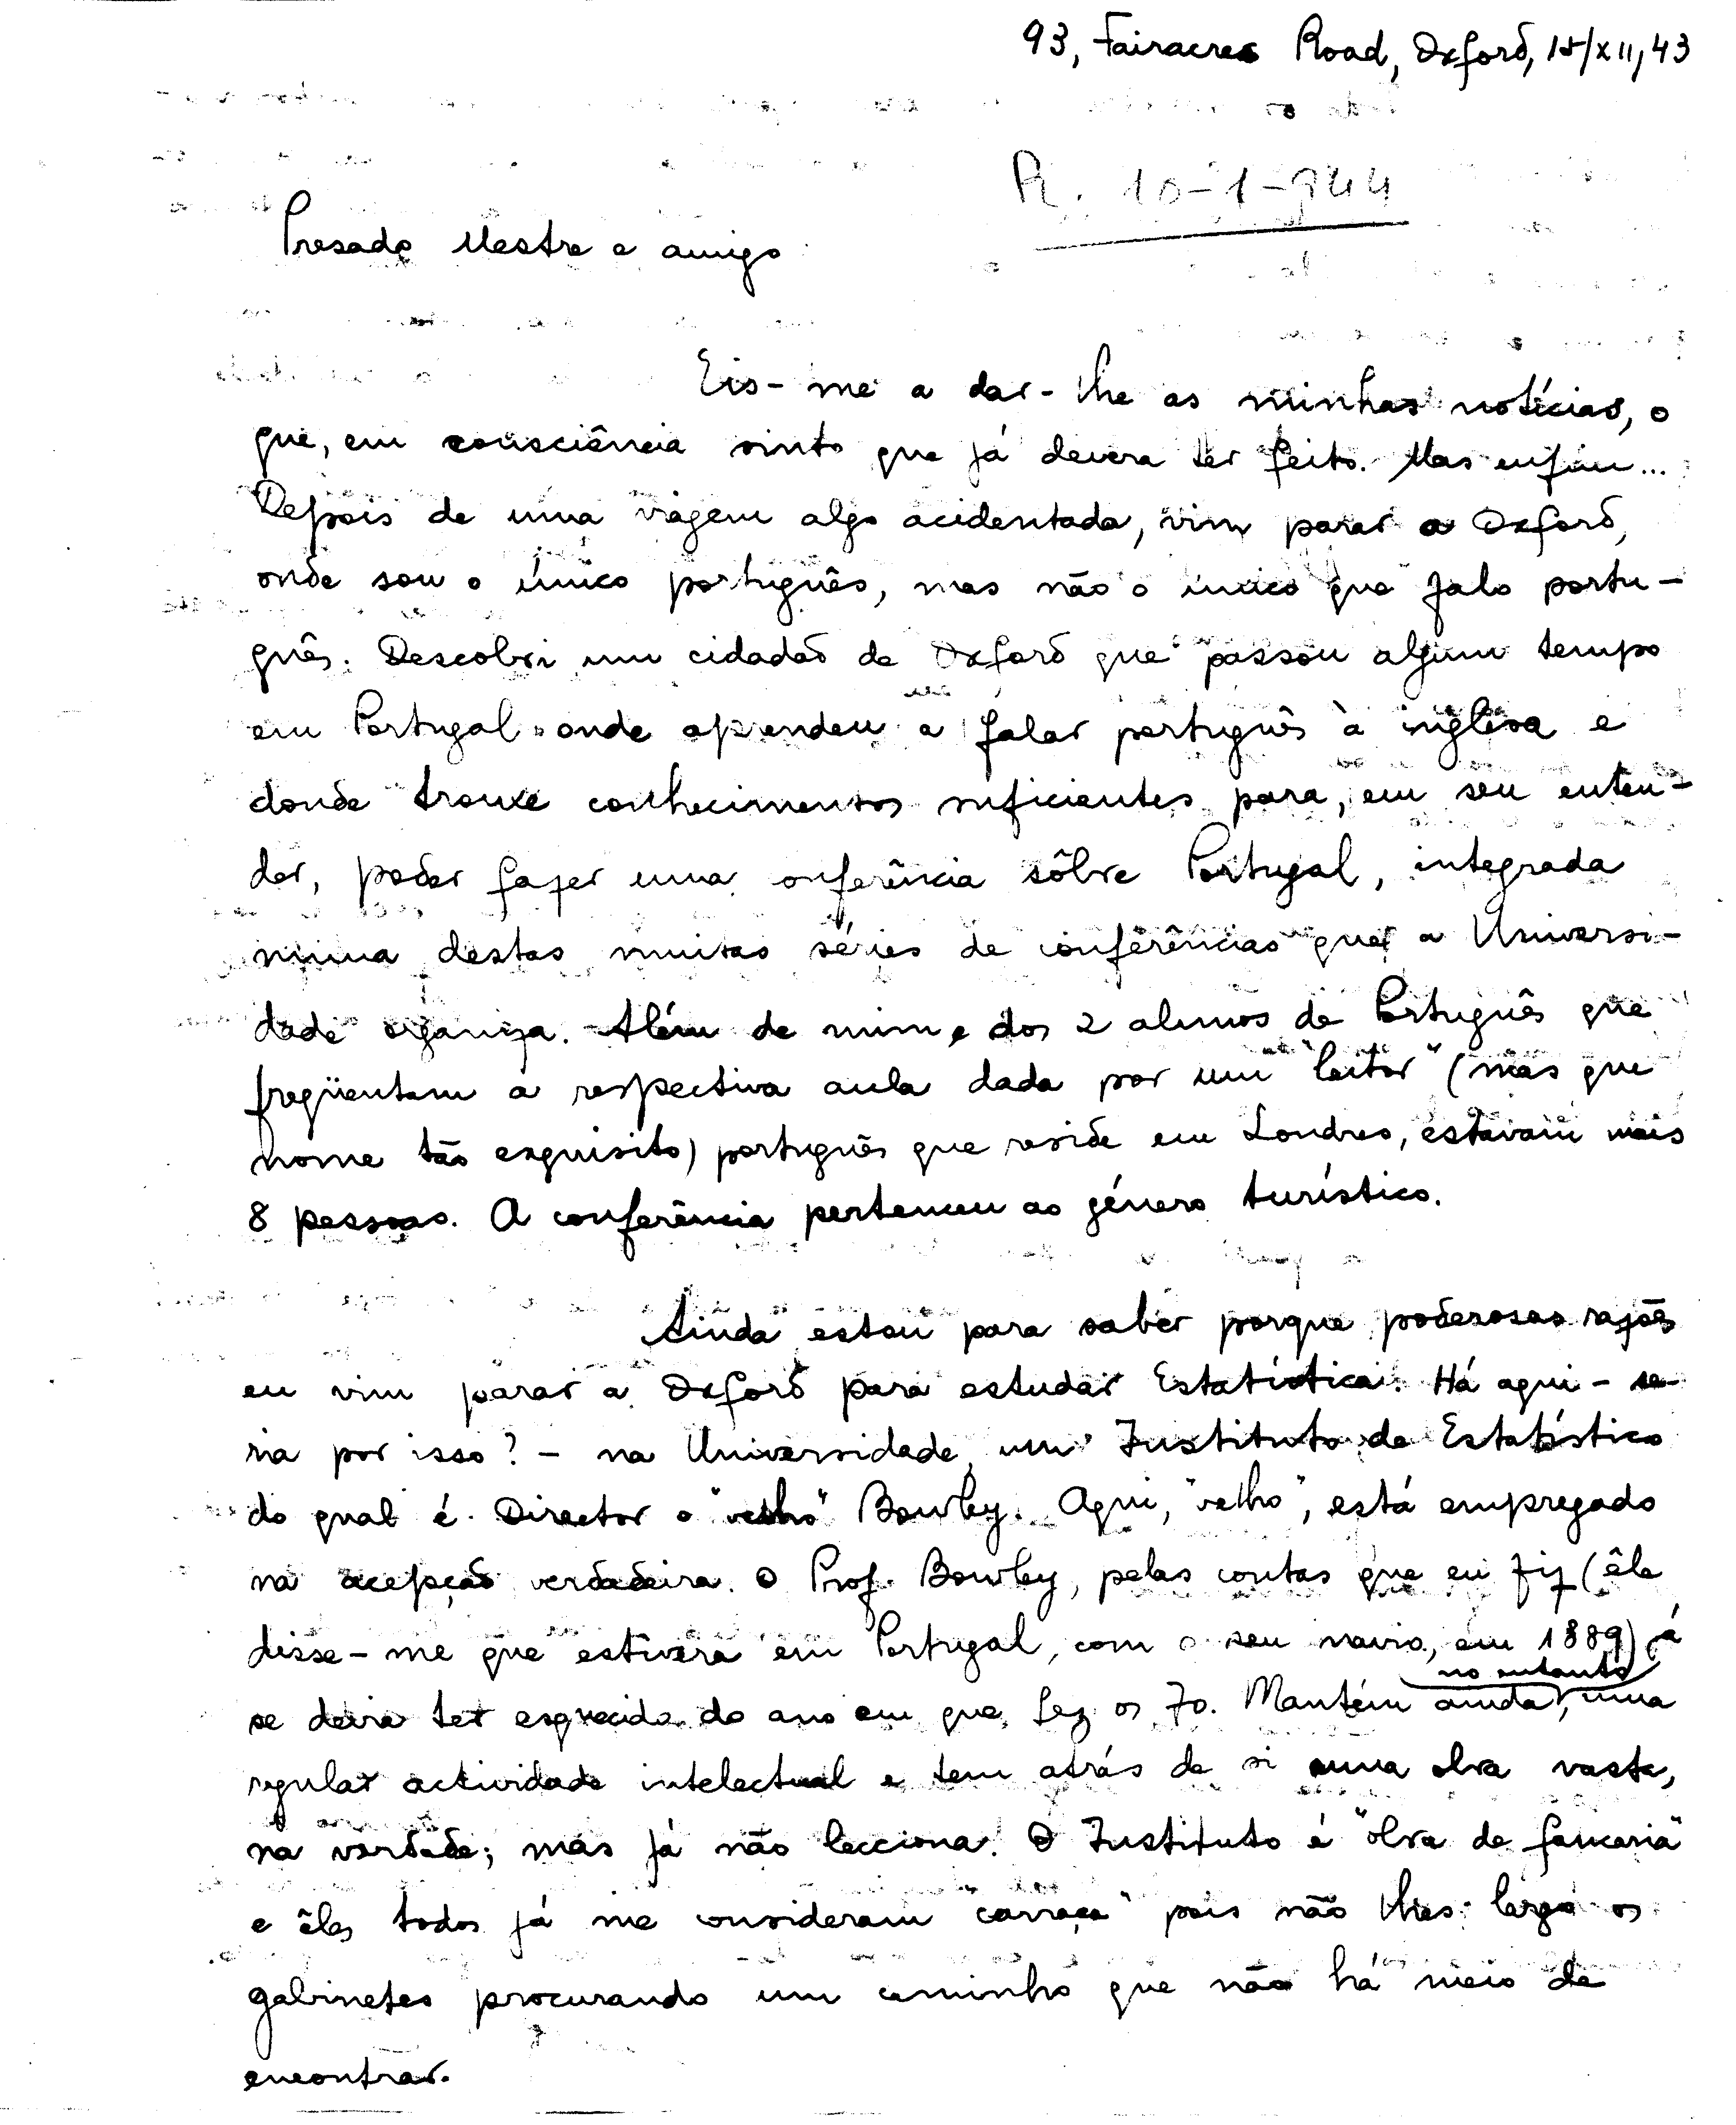 93, Fairacres Road, Oxford, 18/XII/43
R. 10-1-944
Presado Mestre e amigo
Eis-me a dar-lhe as minhas notícias, o
que, em consciência sinto que já devera ter feito. Mas enfim...
Depois de uma viagem algo acidentada, vim parar a Oxford,
onde sou o único português, mas não o único que fala portu-
guês. Descobri um cidadão de Oxford que passou algum tempo
em Portugal onde aprendeu a falar português à inglesa e
donde trouxe conhecimentos suficientes para, em seu enten-
der, poder fazer uma conferência sôbre Portugal, integrada
numa destas muitas séries de conferências que a Universi-
dade organiza. Além de mim e dos 2 alunos de Português que
freqüentam a respectiva aula dada por um "leitor" (mas que
nome tão exquisito) português que reside em Londres, estavam mais
8 pessoas. A conferência pertenceu ao género turístico.
Ainda estou para saber porque poderosas razões
eu vim parar a Oxford para estudar Estatística. Há aqui - se-
ria por isso? - na Universidade um Instituto de Estatística
do qual é Director o "velho" Bowley. Aqui, "velho", está empregado
na acepção verdadeira. O Prof. Bowley, pelas contas que eu fiz (êle
disse-me que estivera em Portugal, com o seu navio, em 1889) já
se deve ter esquecido do ano em que fez os 70. Mantém ainda, no entanto, uma
regular actividade intelectual e tem atrás de si uma obra vasta,
na verdade; mas já não lecciona. O Instituto é "obra de fancaria"
e êles todos já me consideram "carraça" pois não lhes largo os
gabinetes procurando um caminho que não há meio de
encontrar.